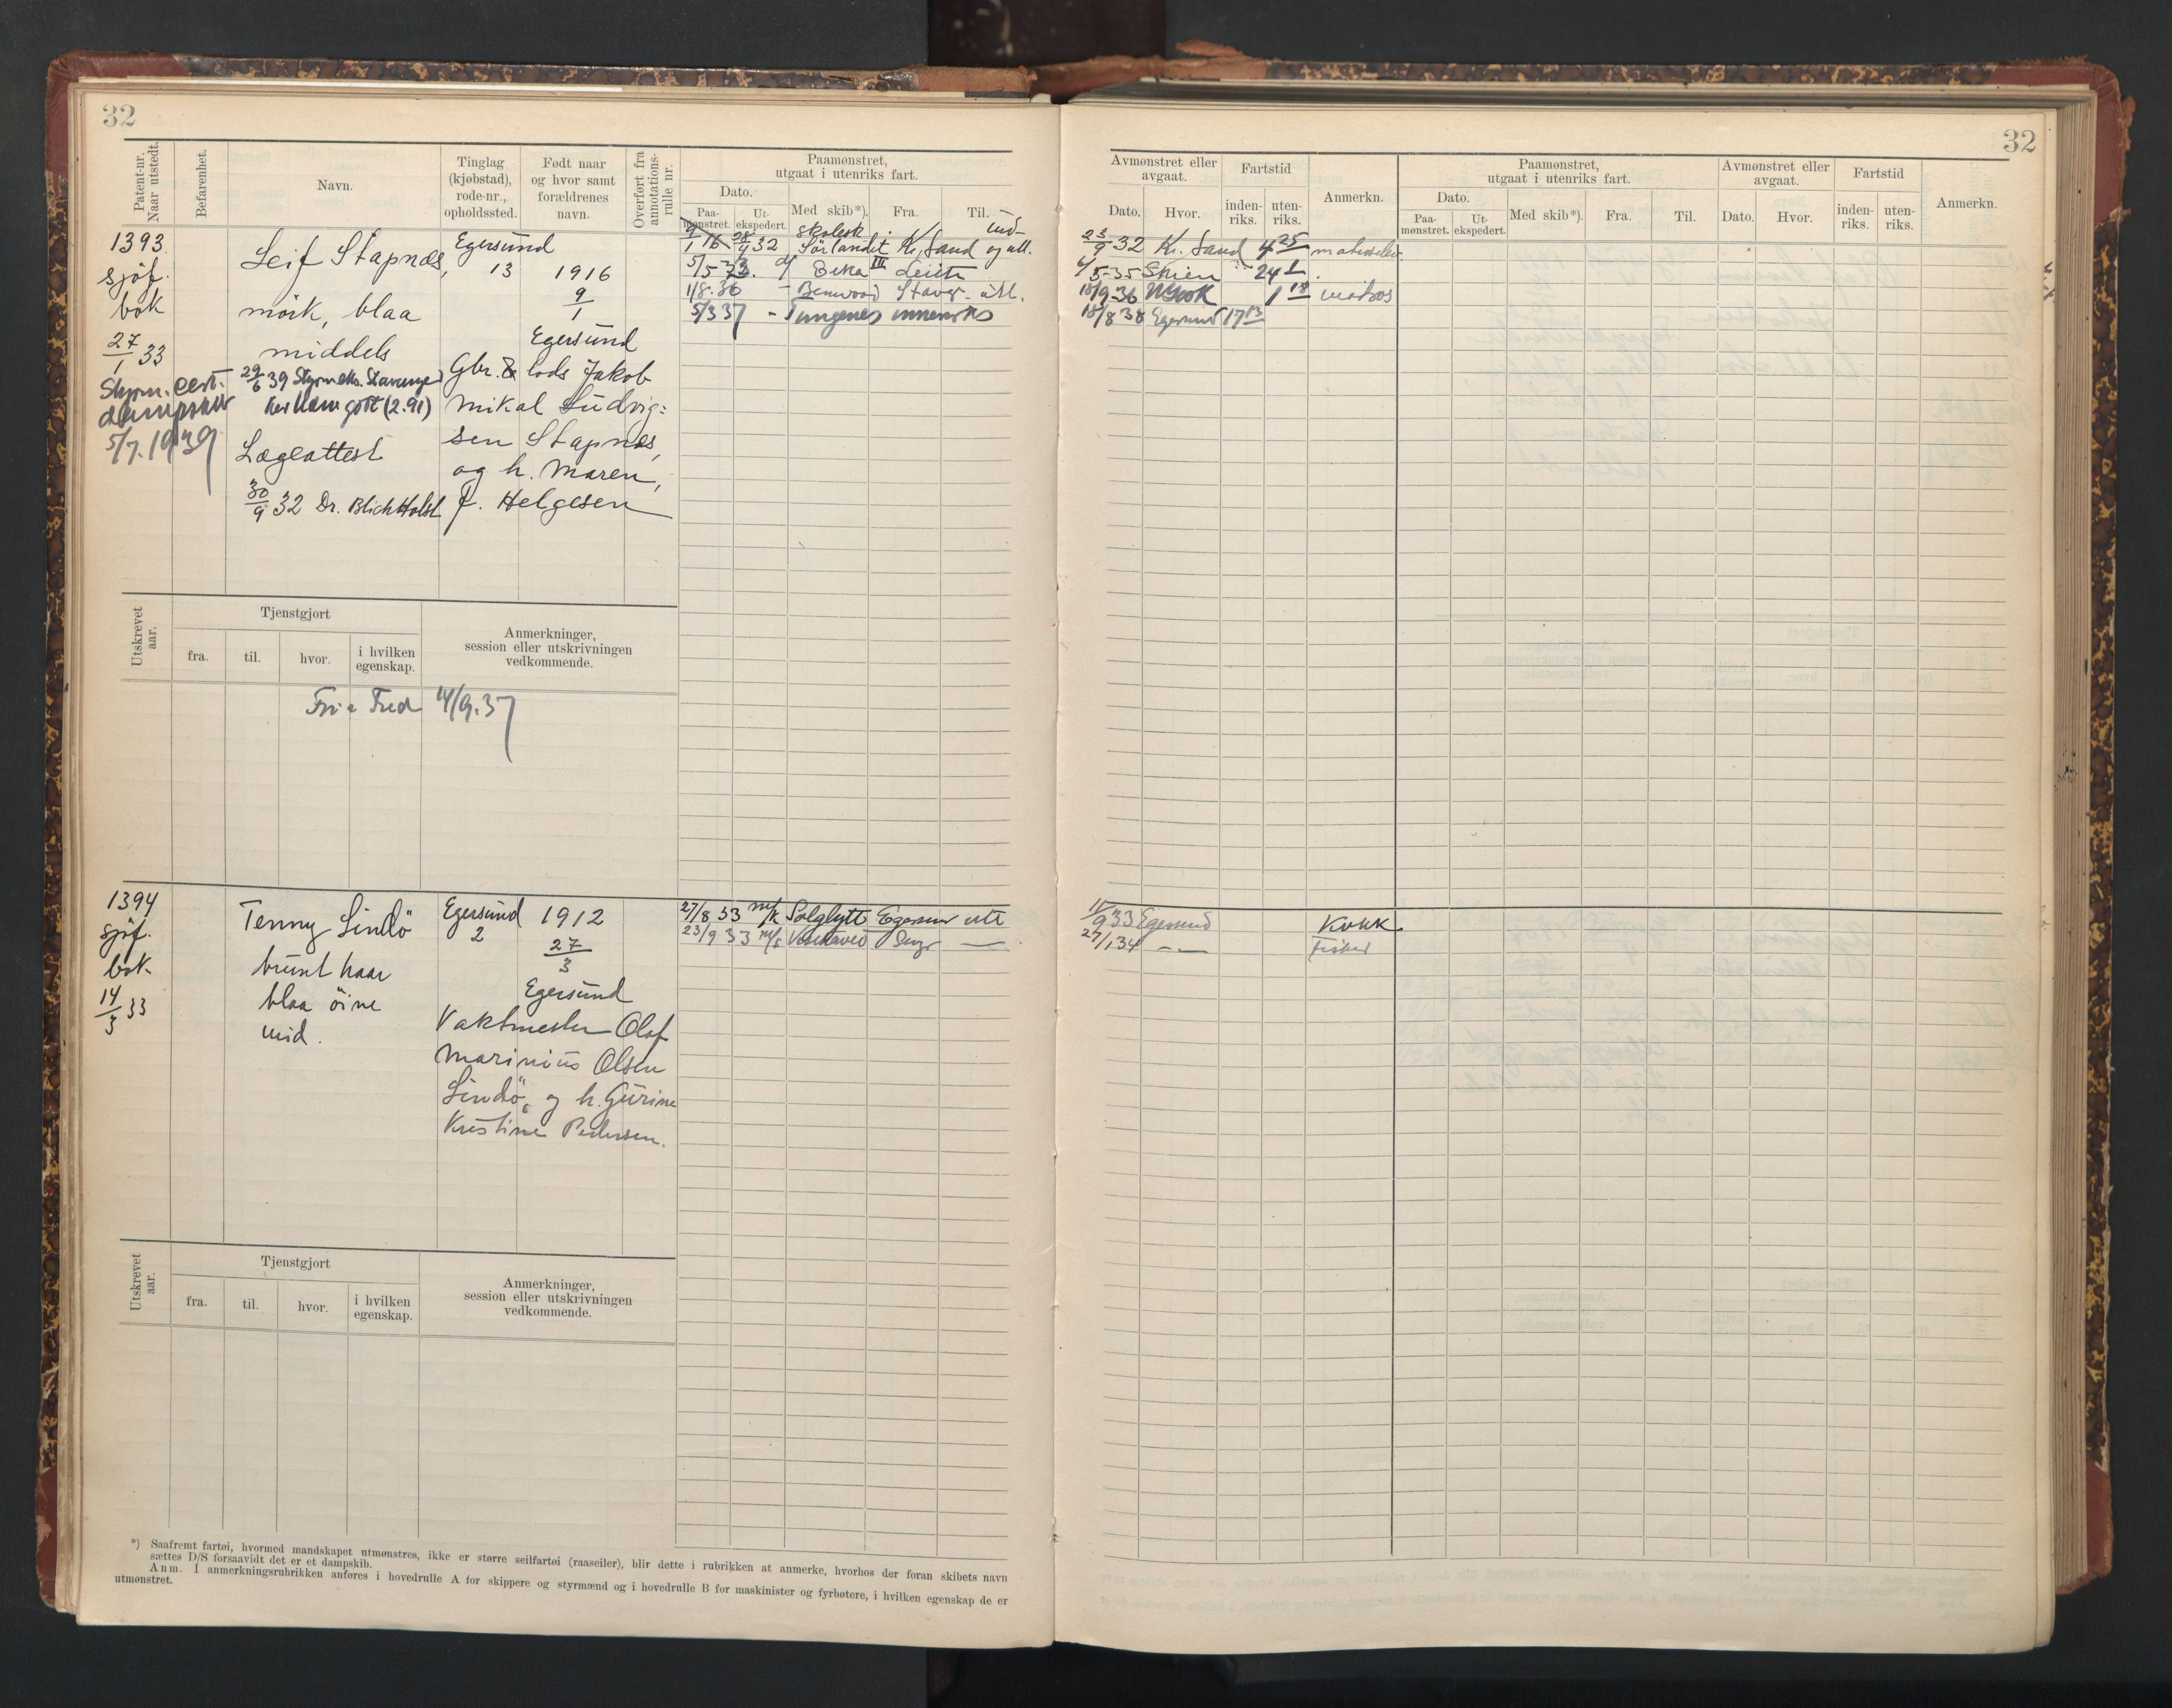 32
32
Patent-nr. Naar utstedt.
Befarenhet.
Navn.
Tinglag (kjøbstad), rode-nr., opholdssted.
Født naar og hvor samt forældrenes navn.
Overført fra annotations-rulle nr.
Paamønstret, utgaat i utenriks fart.
Dato.
Paa-mønstret.
Ut-ekspedert.
Med skib*).
Fra.
Til.
Avmønstret eller avgaat.
Dato.
Hvor.
Fartstid
inden-riks.
uten-riks.
Anmerkn.
Paamønstret, utgaat i utenriks fart.
Dato.
Paa-mønstret.
Ut-ekspedert.
Med skib*).
Fra.
Til.
Avmønstret eller avgaat.
Dato.
Hvor.
Fartstid
inden-riks.
uten-riks.
Anmerkn.
1393
sjöf.
bok
27/1 33
Styrm. cert.
dampskib
5/7.1939
Leif Stapnes,
mörk, blaa
middels
29/6 39 Styrm eks. Stavanger
Lægeattest
30/9 32 Dr. Blich Holst
Egersund
13
1916
9/1
Egersund
Gbr. & lods Jakob
Mikal Ludvig-
sen Stapnes,
og h. Maren,
f. Helgesen
9/1 16 28/4 32 skolesk. Sörlandet Kr. Sand ind- og utl.
5/5 33. d/ Beka III Leith
1/8.36 - Benwood Stavgr. utl.
5/3 37 - Tungenes innenriks
23/9 32 Kr. Sand 4 25
6/5-35 Skien 24 1
18/9-36 N York 1 18 matros
18/8 38 Egersund 17 13
Utskrevet aar.
Tjenstgjort
fra.
til.
hvor.
i hvilken egenskap.
Anmerkninger, session eller utskrivningen vedkommende.
14/9.37
1394
sjöf.
bok
14/3 33
Tenny Lindö
brunt haar
blaa öine
mid.
Egersund
2
1912
27/3
Egersund
Vaktmester Olaf
Marinius Olsen
Lindö, og h. Gurine
Kristine Pedersen.
27/8 33 m/k Solglytt Egersun utl
23/9 33 m/s
11/9 33 Egersund Kokk
27/1 34 - - Fisker
Utskrevet aar.
Tjenstgjort
fra.
til.
hvor.
i hvilken egenskap.
Anmerkninger, session eller utskrivningen vedkommende.
*) Saafremt fartøi, hvormed mandskapet utmønstres, ikke er større seilfartøi (raaseiler), blir dette i rubrikken at anmerke, hvorhos der foran skibets navn
sættes D/S forsaavidt det er et dampskib.
Anm. I anmerkningsrubrikken anføres i hovedrulle A for skippere og styrmænd og i hovedrulle B for maskinister og fyrbøtere, i hvilken egenskap de er
utmønstret.